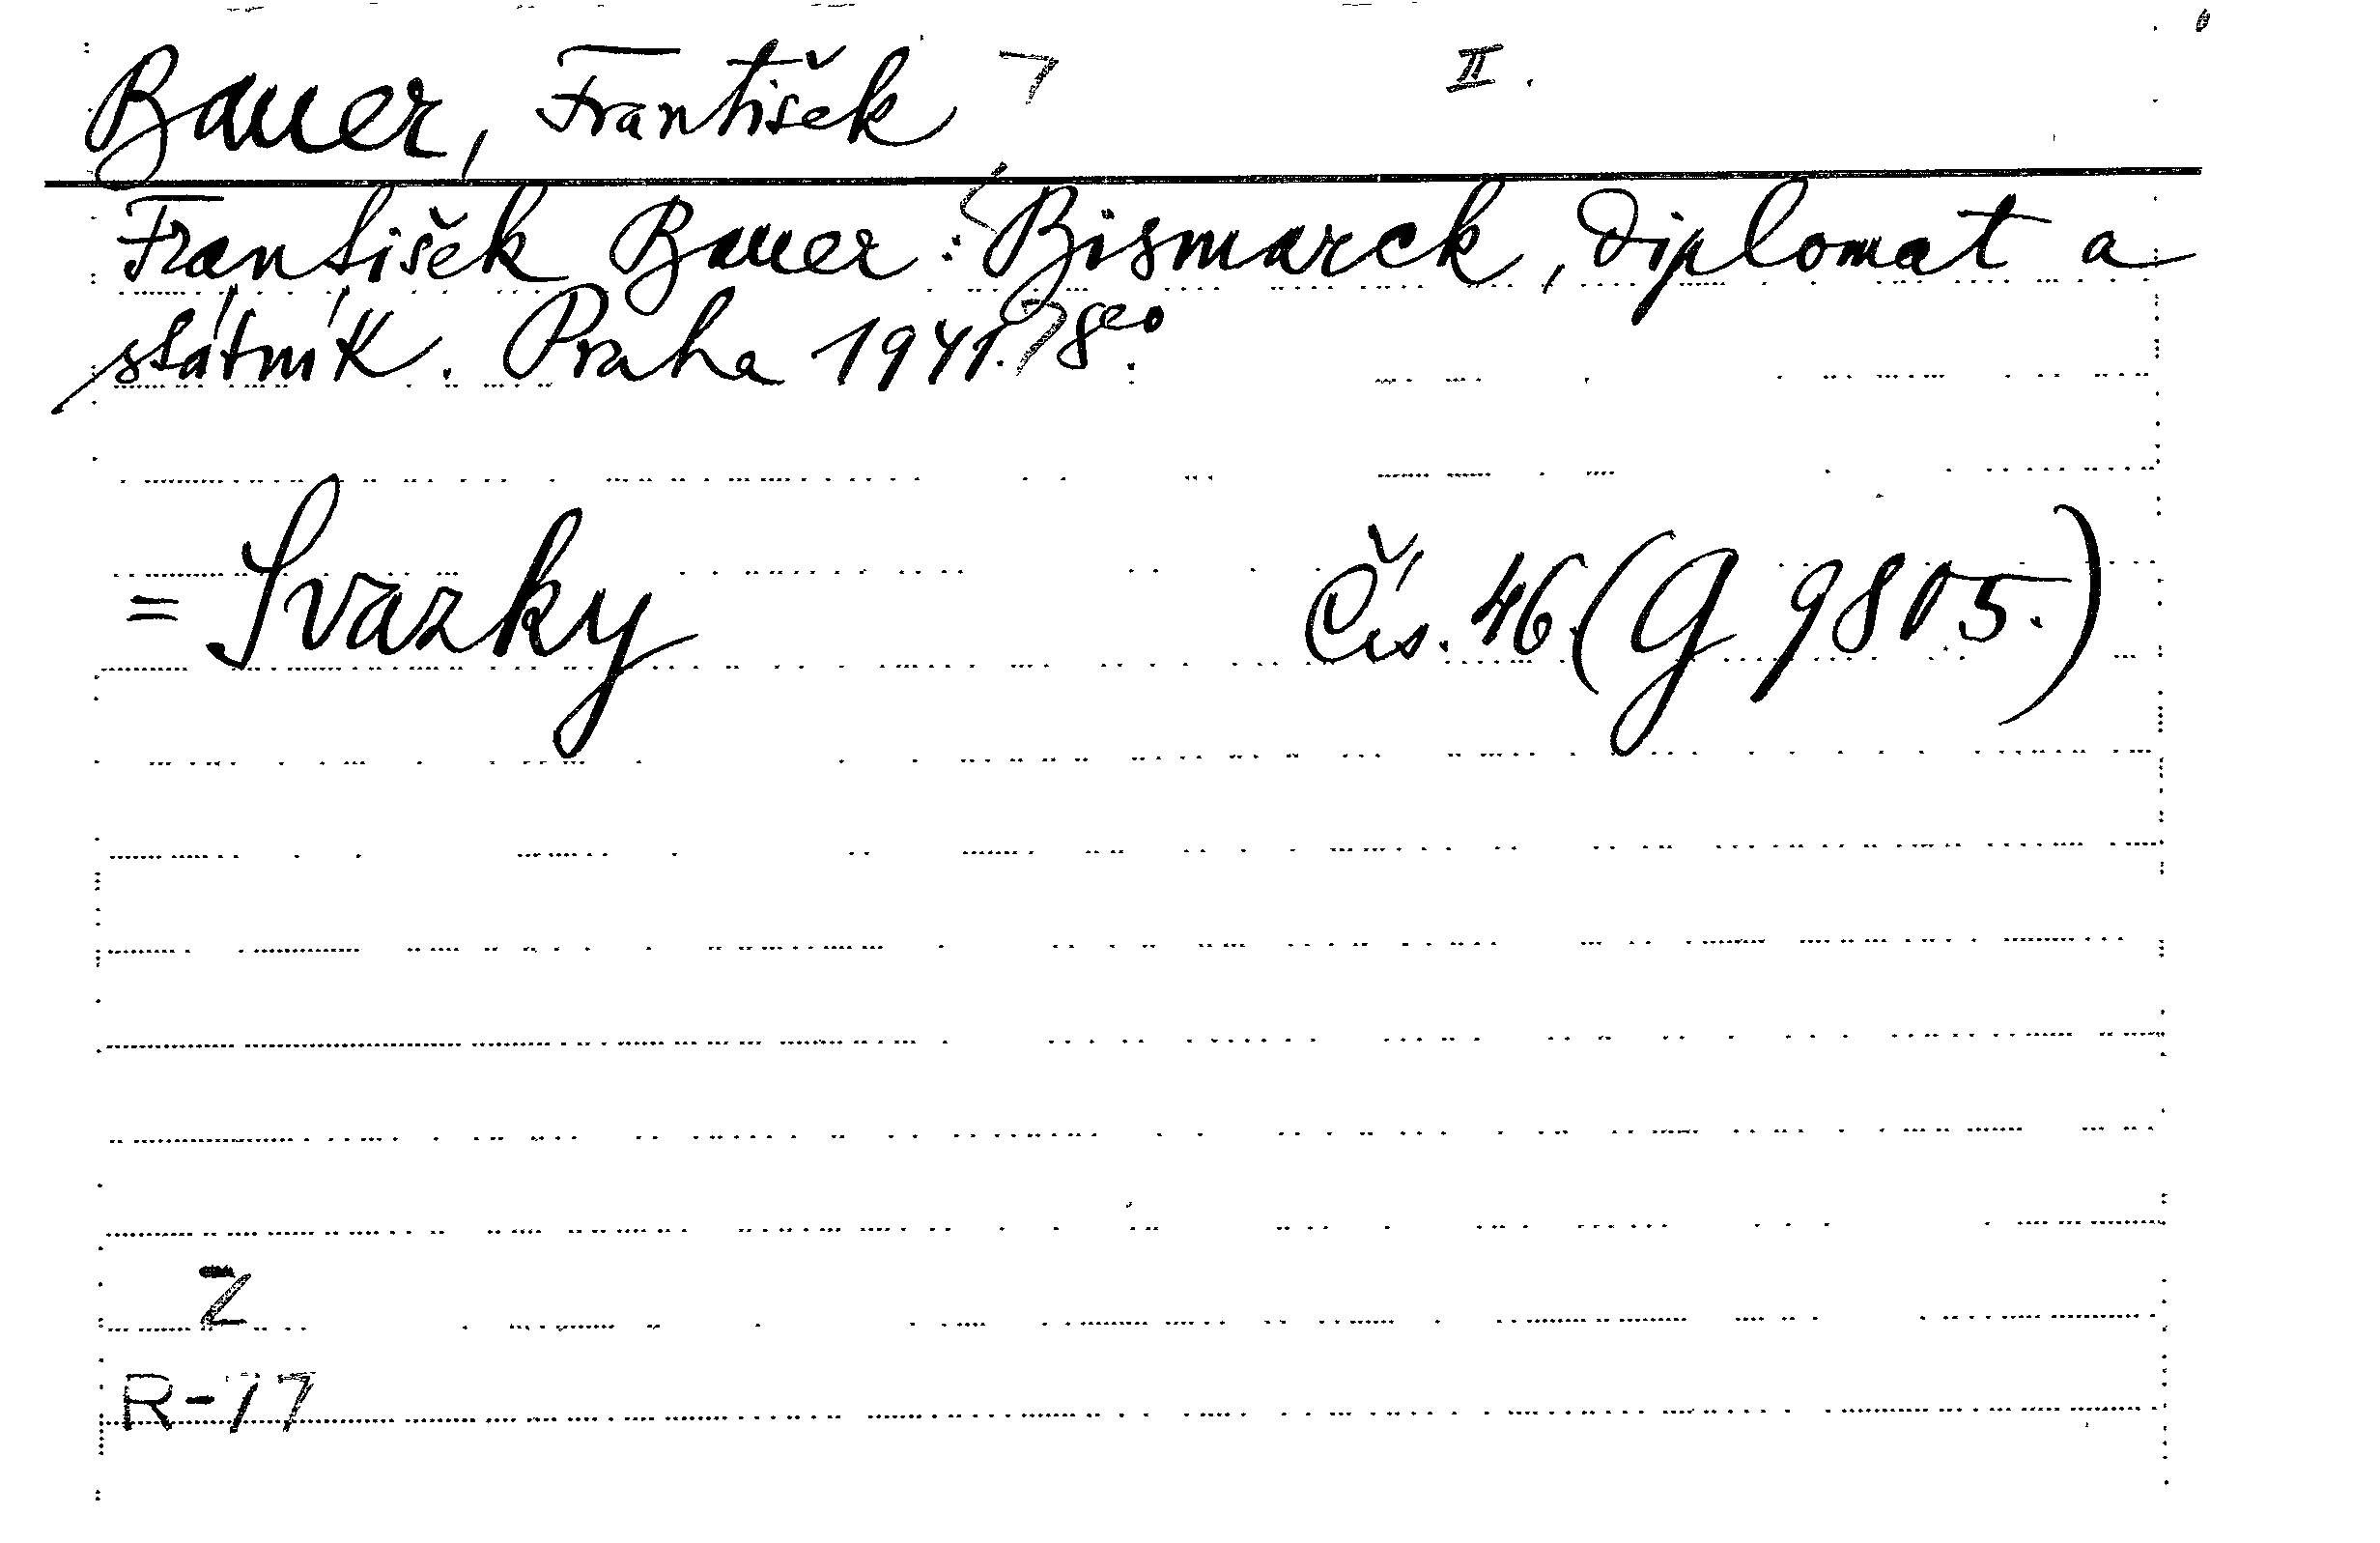 Bauer, František 7 II.
František Bauer: Bismarck, diplomat a
státník. Praha 1941. 8eo.
= Svazky Čís. 46. (G 9805.)
Z
R-77